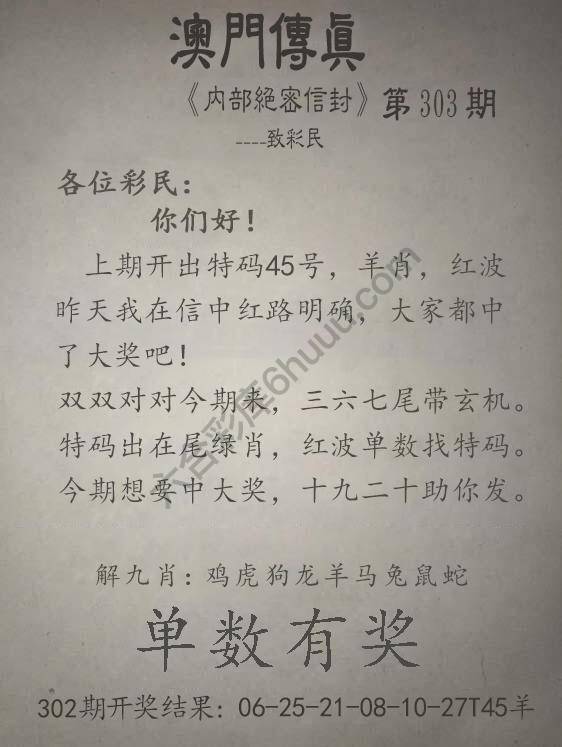 澳門傳眞
《内部絕密信封》第303期
----致彩民
各位彩民：
你们好！
上期开出特码45号，羊肖，红波
昨天我在信中红路明确，大家都中
了大奖吧！
双双对对今期来，三六七尾带玄机。
特码出在尾绿肖，红波单数找特码。
今期想要中大奖，十九二十助你发。
六合彩库6huuu.com
解九肖：鸡虎狗龙羊马兔鼠蛇
单数有奖
302期开奖结果：06-25-21-08-10-27T45羊